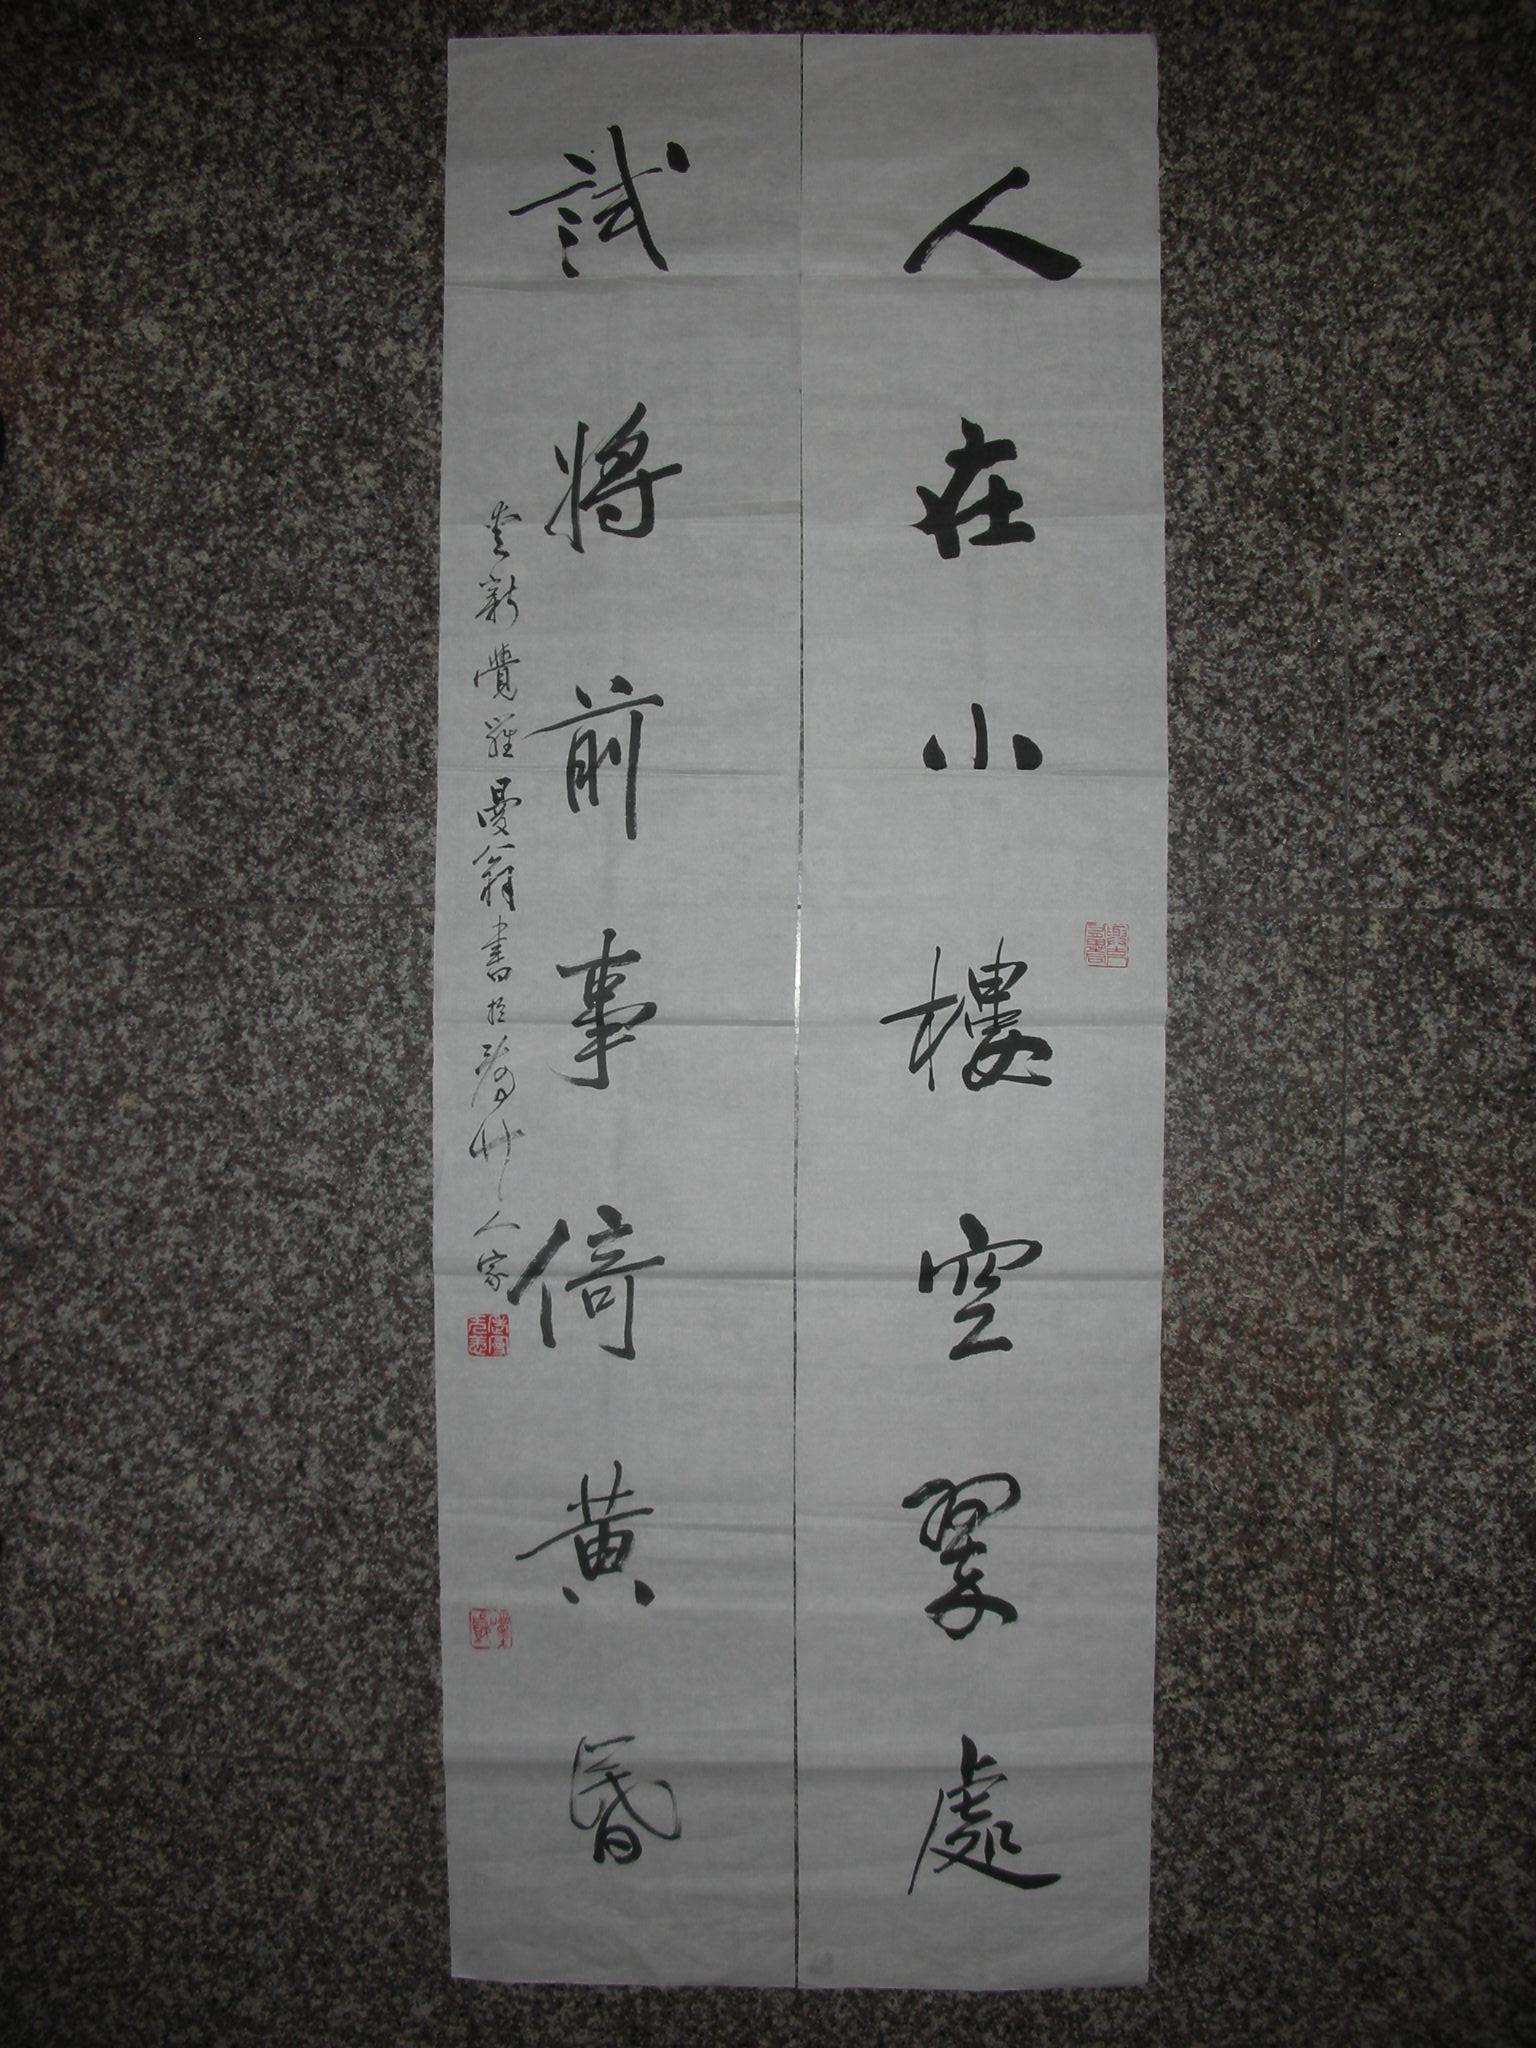 人在小樓空翠處
試將前事倚黃昏
愛新覺羅曼翁書於荷竹人家